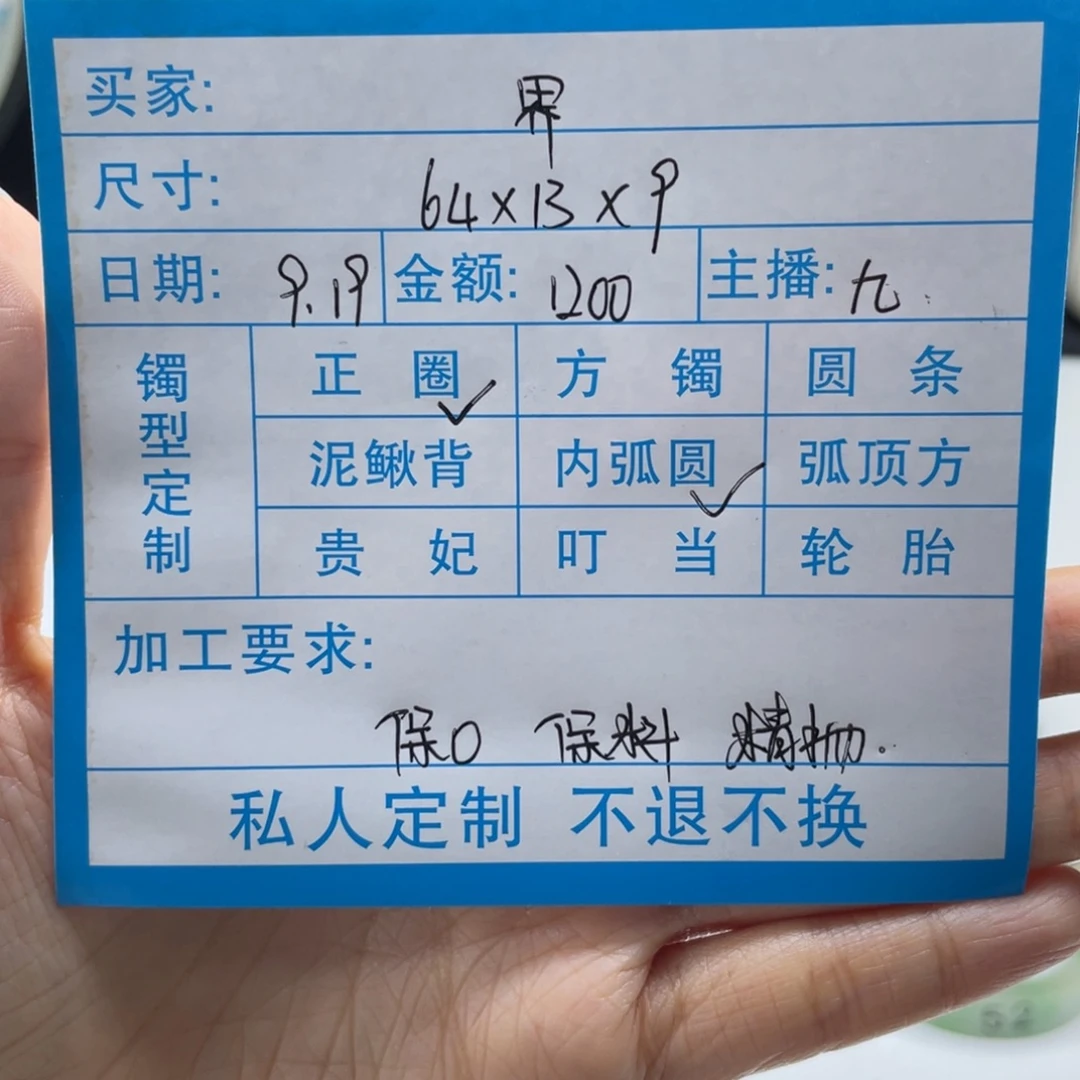 买家: 界
尺寸: 64×13×9
日期: 9.19 金额: 1200 主播: 九.
镯型定制
正圈 方镯 圆条
泥鳅背 内弧圆 弧顶方
贵妃 叮当 轮胎
加工要求:
保O 保料 精抛.
私人定制 不退不换
52